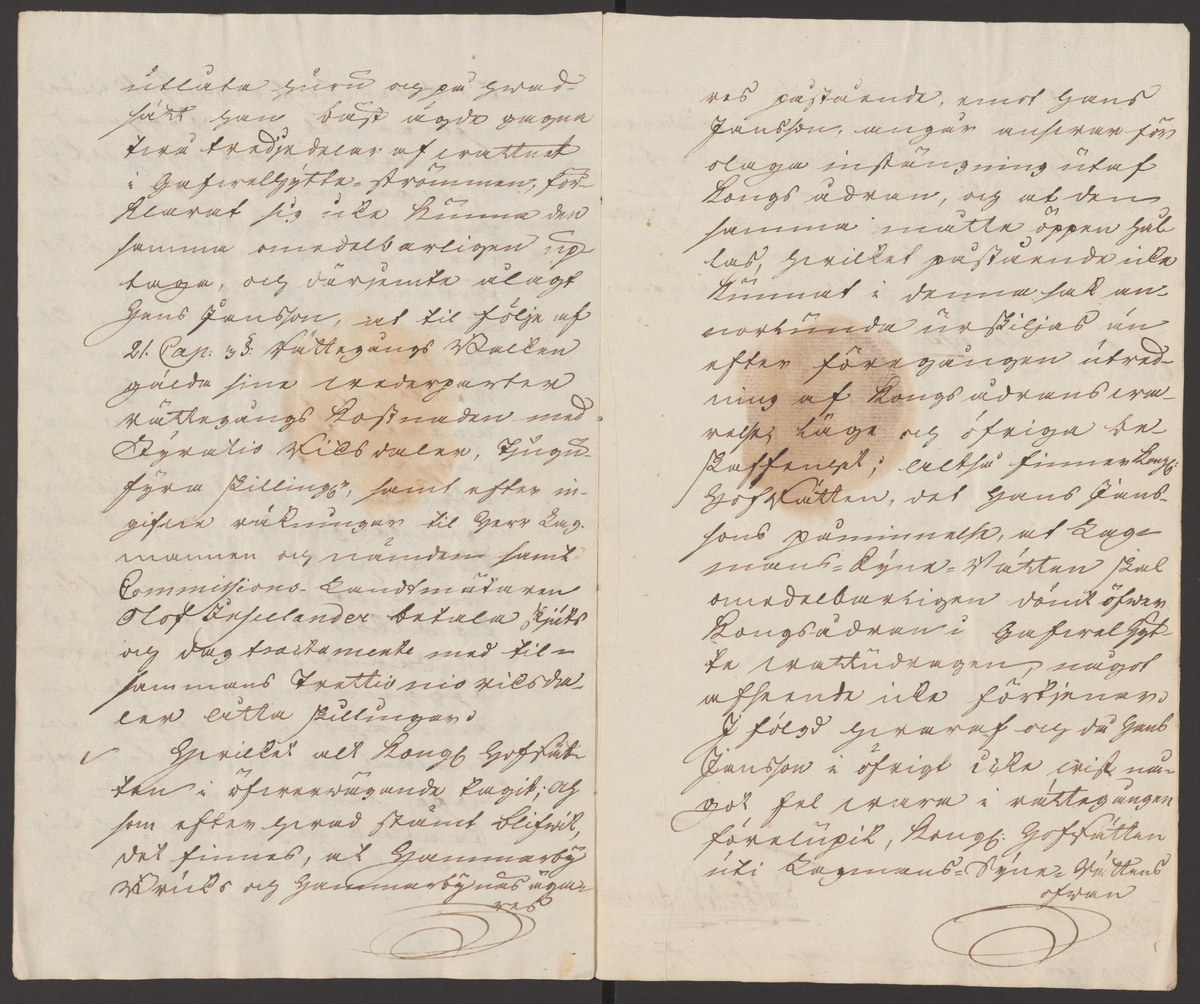 utlåta huru och på hvad
sätt han bäst ägde gagna
sina tredjedelar af wattnet
i Gafwelhytte-strömmen, för-
klarat sig icke kunna den
samma omedelbarligen up-
taga, och därjemte ålagt
Hans Jansson, at til följe af
21. Cap: 3 §: Rättegångs Balken
gälda sine wederparter
rättegångs kostnaden med
Fyratio Riksdaler, Tjugu-
fyra skillingr, samt efter in-
gifne räkningar til Herr Lag-
mannen och nämden samt
Commissions-Landtmätaren
Olof Insulander betala skjuts
och dagtractamente med til-
sammans Trettionio riksda-
ler åtta skillingar.
Hwilket alt Kongl Hofrät-
ten i öfwerwägande tagit; och
som efter hwad stämt blifwit,
det finnes, at Hammarby
Bruks och Hammarbynäs äga-
res
res påstående, emot Hans
Jansson, angår answar för
olaga instängning utaf
Kongsådran, och at den
samma måtte öppen hål-
las, hwilket påstående icke
kunnat i denna sak an-
norlunda urskiljas än
efter föregången utred-
ning af Kongsådrans wa-
relse, läge och öfriga be-
skaffenhet; altså finner Kongl:
Hofrätten, det Hans Jans-
sons påminnelse, at Lag-
mans-Syne-Rätten skal
omedelbarligen dömt öfwer
Kongsådran i Gafwelhyt-
te wattudragen, något
afseende icke förtjenar.
I följd hwaraf och då Hans
Jansson i öfrigt icke wist nå-
got fel wara i rättegången
förelupit, Kongl: Hofrätten
uti Lagmans-Syne-Rättens
ofwan